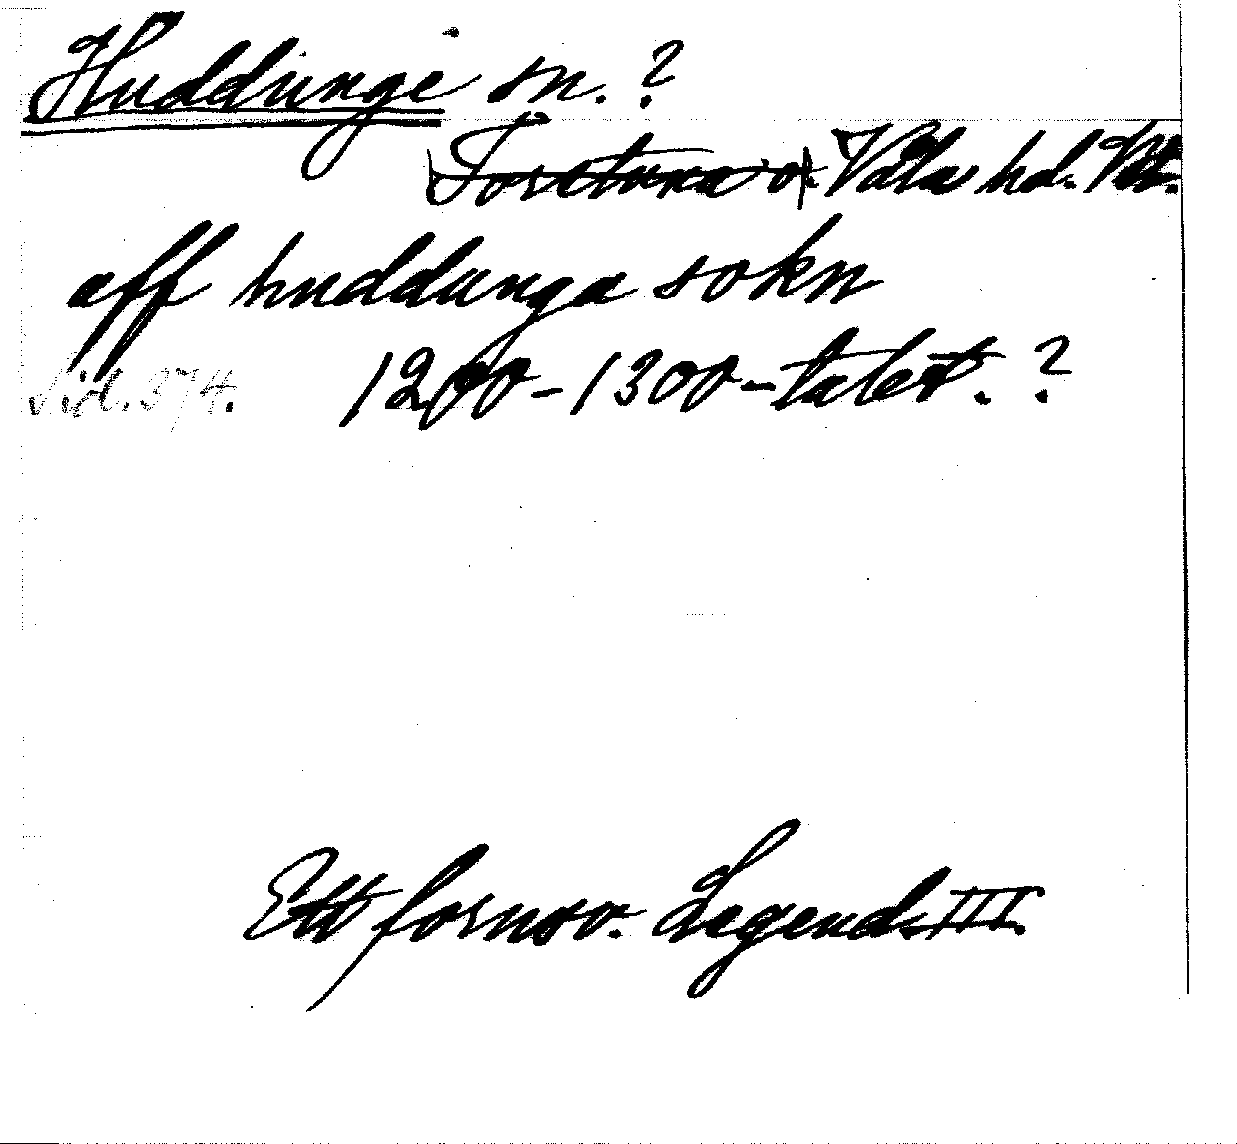 Huddunge sn. ?
(Torstuna o.) Våla hd. Vtm.
aff huddunga sokn
Sid. 374. 1200-1300-talet. ?
Ett fornsv. Legend. III.